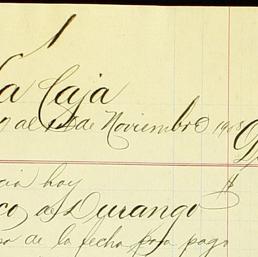 la Caja
al 14 de Noviembre 1903
cia hoy $
co de Durango
so de la fecha para pago